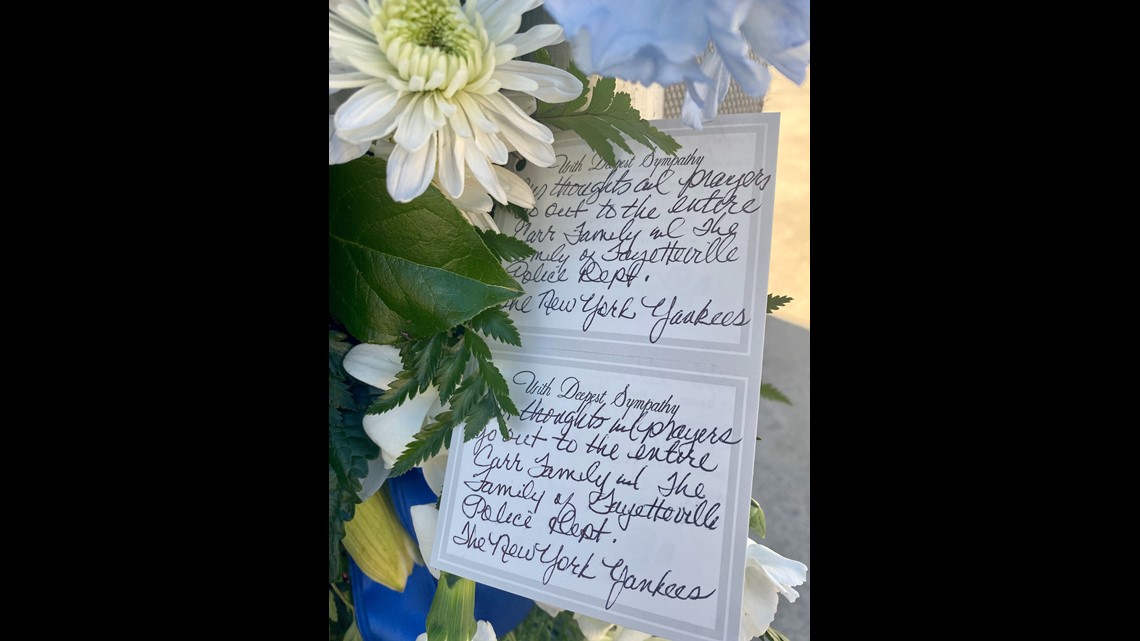 With Deepest Sympathy
thoughts and prayers
go out to the entire
Carr Family and The
Family of Fayetteville
Police Dept.
The New York Yankees
With Deepest Sympathy
thoughts and prayers
go out to the entire
Carr Family and The
Family of Fayetteville
Police Dept.
The New York Yankees